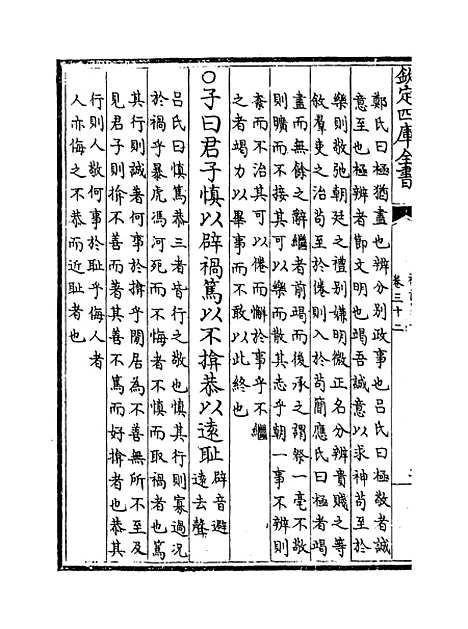 欽定四庫全書
卷三十二
鄭氏曰極猶盡也辨分别政事也吕氏曰極敬者誠
意至也極辨者節文明也竭吾誠意以求神苟至於
樂則敬弛朝廷之禮别嫌明微正名分辨貴賤之等
敘羣吏之治苟至於倦則入於苟簡應氏曰極者竭
盡而無餘之辭繼者前竭而後承之謂祭一毫不敬
則曠而不接其可以繼樂而散其志乎朝一事不辨則
紊而不治其可以倦而懈於事乎不繼
之者竭力以畢事而不敢以此終也
○子曰君子慎以辟禍篤以不揜恭以遠恥辟音避
遠去聲
吕氏曰慎篤恭三者皆行之敬也慎其行則寡過況
於禍乎暴虎馮河死而不悔者不慎而取禍者也篤
其行則誠著何事於揜乎閒居為不善無所不至及
見君子則揜不善而著其善不篤而好揜者也恭其
行則人敬何事於恥乎侮人者
人亦侮之不恭而近恥者也